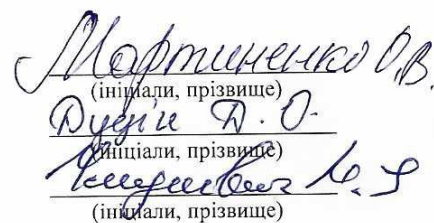 Мартиненко О.В.
(ініціали, прізвище)
Дуцін Д.О.
(ініціали, прізвище)
(ініціали, прізвище)